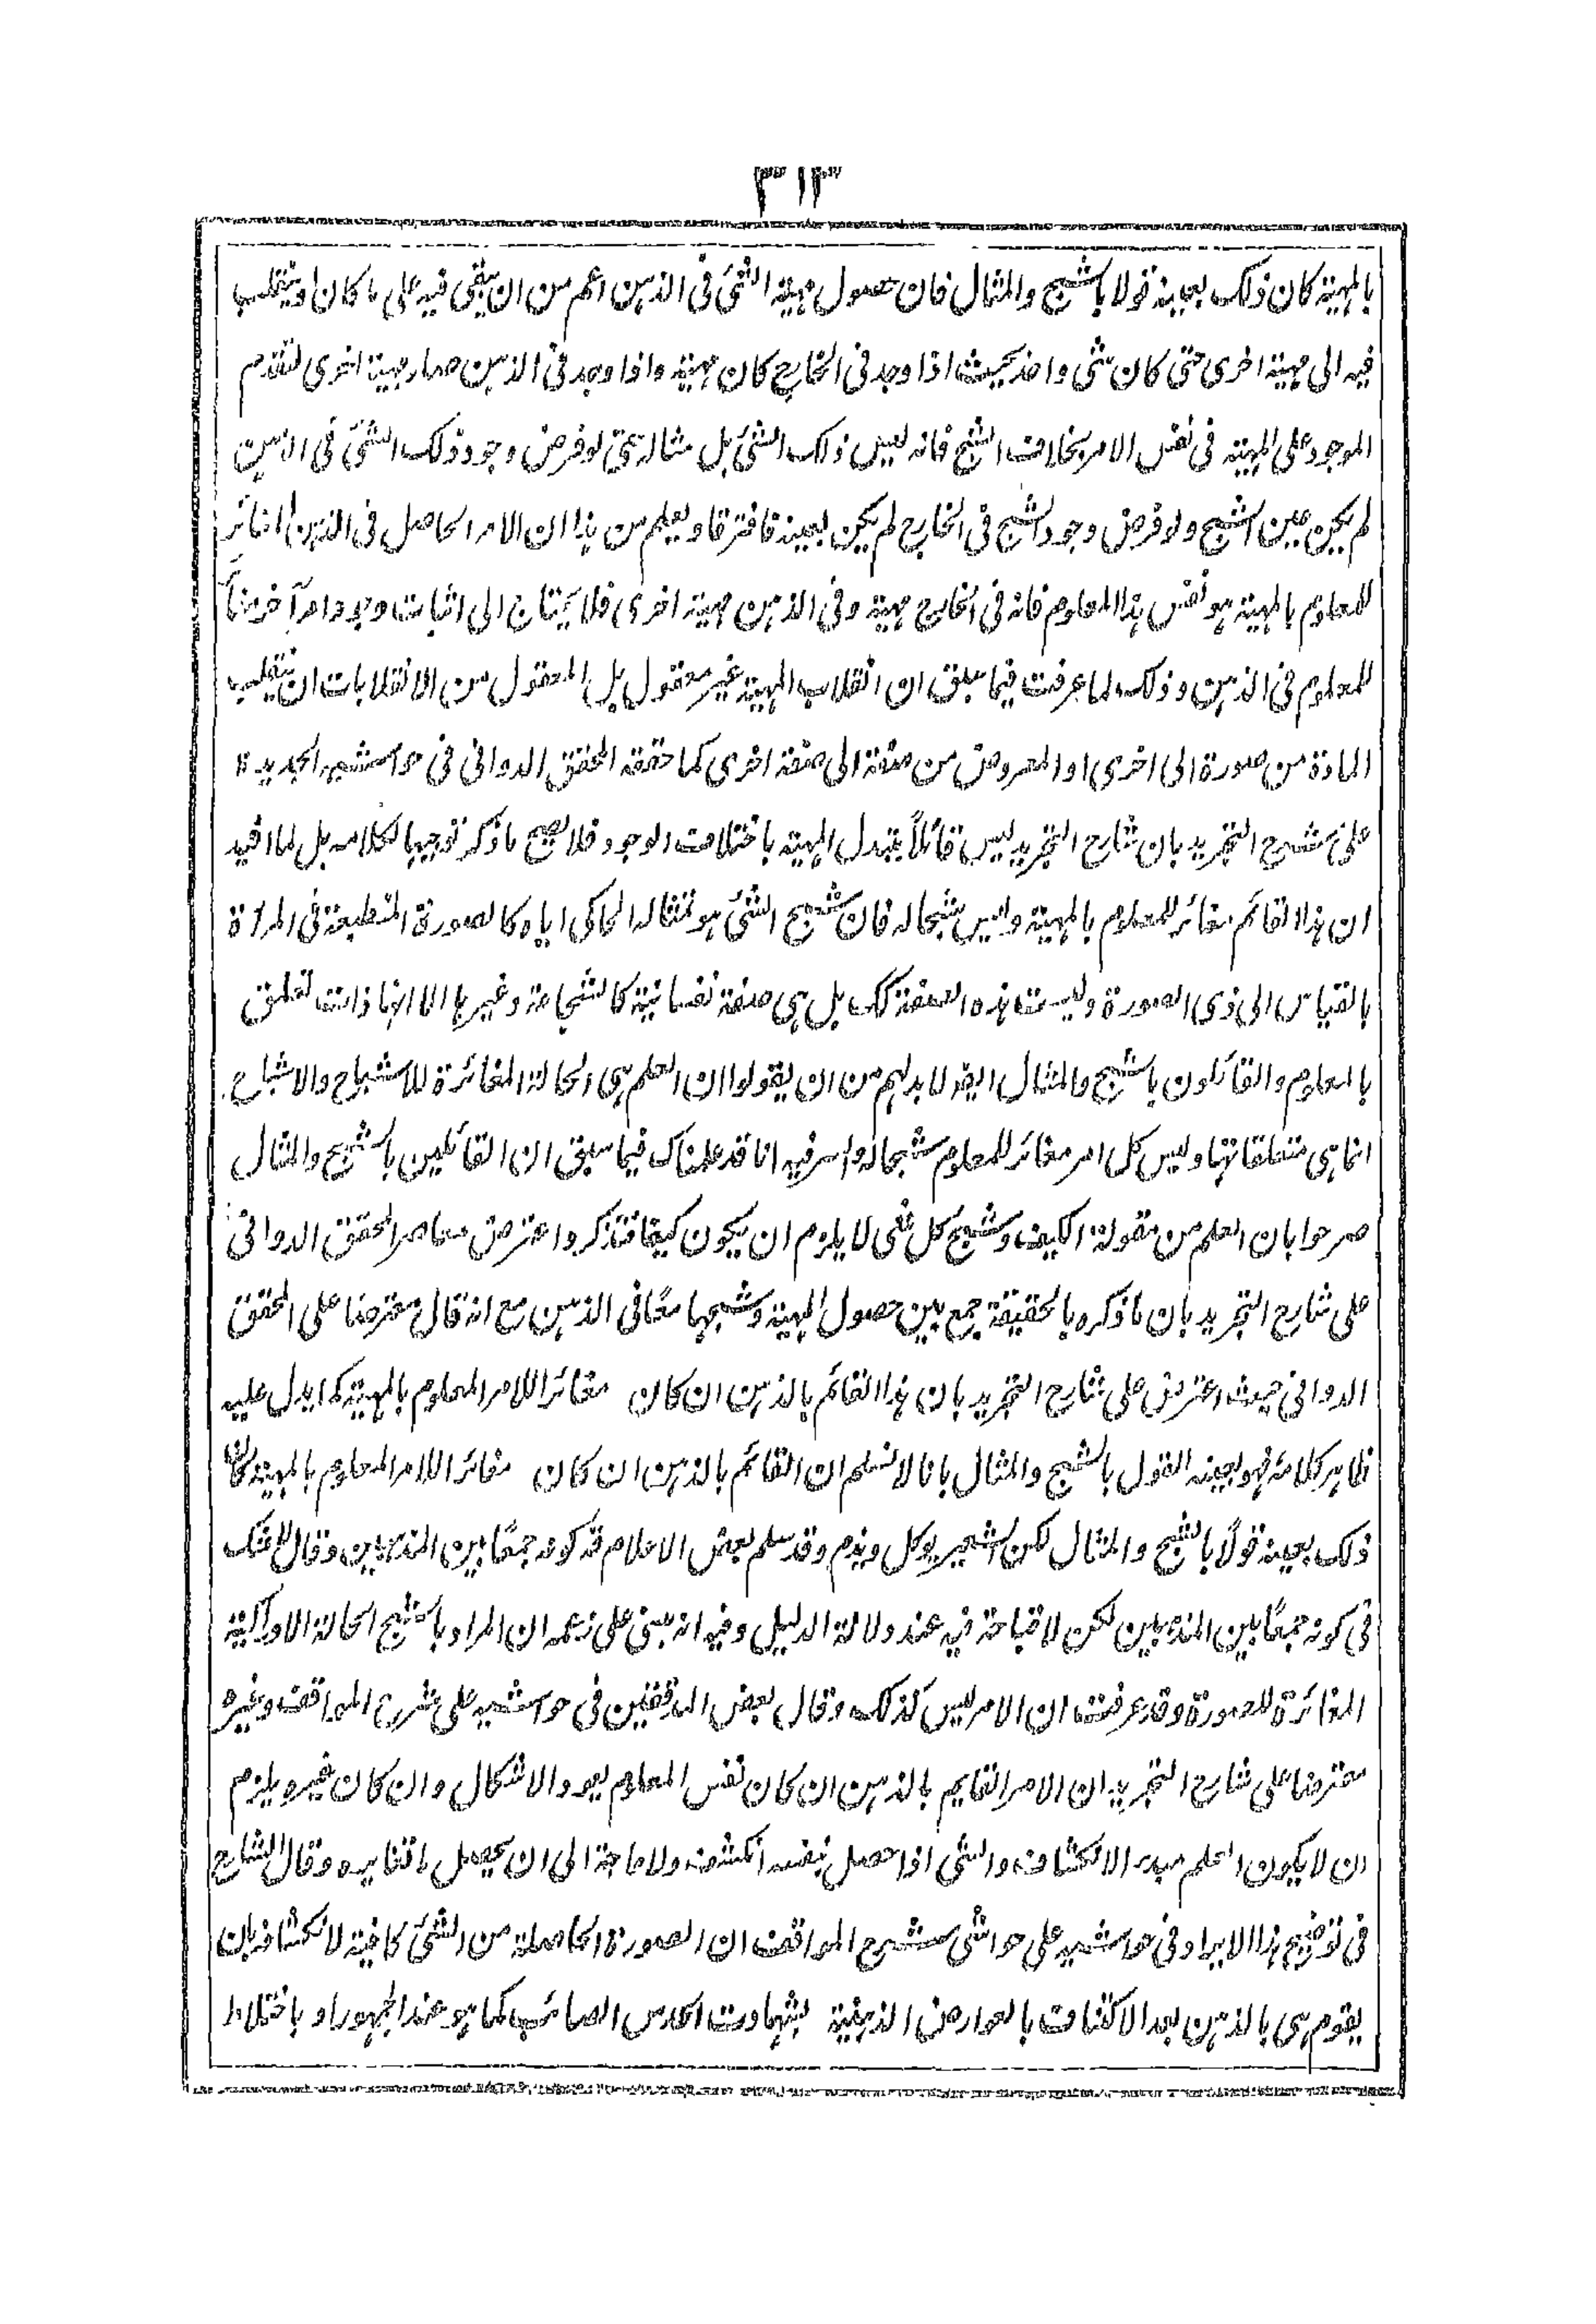 ٣١٣
بالمهية كان ذلك بعينه قولا بالشبح والمثال فان حصول مهية الشئ فى الذهن اعم من ان يبقى فيه على ما كان او ينقلب
فيه الى مهية اخرى حتى كان شئ واحد بحيث اذا وجد فى الخارج كان مهية واذا وجد فى الذهن صار مهية اخرى لتقدم
الموجود على المهية فى نفس الامر بخلاف الشبح فانه ليس ذلك الشئ بل مثاله حتى لو فرض وجود ذلك الشئ فى الذهن
لم يكن عين الشبح ولو فرض وجود الشبح فى الخارج لم يكن بعينه فافترقا ويعلم من هذا ان الامر الحاصل فى الذهن المغائر
للمعلوم بالمهية هو نفس هذا المعلوم فانه فى الخارج مهية وفى الذهن مهية اخرى فلا يحتاج الى اثبات وجود امر آخر
للمعلوم فى الذهن وذلك لما عرفت فيما سبق ان انقلاب المهية غير معقول بل المعقول من الانقلابات ان ينقلب
المادة من صورة الى اخرى او المعروض من صفة الى صفة اخرى كما حققه المحقق الدوانى فى حواشيه الجديدة
على شرح التجريد بان شارح التجريد ليس قائلاً بتبدل المهية باختلاف الوجود فلا يصح ما ذكر توجيها لكلامه بل لما افيد
ان هذا القائم مغائر للمعلوم بالمهية وليس شبحا له فان شبح الشئ هو تمثاله الحاكى اياه كالصورة المنطبعة فى المرأة
بالقياس الى ذى الصورة وليست هذه الصفة كك بل هى صفة نفسانية كالشجاعة وغيرها الا انها ذات تعلق
بالمعلوم والقائلون بالشبح والمثال ايضا لا بد لهم من ان يقولوا ان العلم هى الحالة المغائرة للاشباح والاشباح
انما هى متعلقاتها وليس كل امر مغائر للمعلوم شبحا له والسر فيه انا قد علمناك فيما سبق ان القائلين بالشبح والمثال
صرحوا بان العلم من مقولة الكيف وشبح كل شئ لا يلزم ان يكون كيفا فتذكر واعترض معاصر المحقق الدوانى
على شارح التجريد بان ما ذكره بالحقيقة جمع بين حصول المهية وشبحها معًا فى الذهن مع انه قال معترضا على المحقق
الدوانى حيث اعترض على شارح التجريد بان هذا القائم بالذهن ان كان مغائرا للامر المعلوم بالمهية كما يدل عليه
ظاهر كلامه فهو بعينه القول بالشبح والمثال بانا لا نسلم ان القائم بالذهن ان كان مغائرا للامر المعلوم بالمهية كان
ذلك بعينه قولًا بالشبح والمثال لكن الشعير يوكل ويذم وقد سلم بعض الاعلام قد كونه جمعًا بين المذهبين وقال لا شك
فى كونه جمعًا بين المذهبين لكن لا قباحة فيه عند دلالة الدليل وفيه انه مبنى على زعمه ان المراد بالشبح الحالة الادراكية
المغائرة للصورة وقد عرفت ان الامر ليس كذلك وقال بعض المدققين فى حواشيه على شرح المواقف وغيره
معترضا على شارح التجريد ان الامر القايم بالذهن ان كان نفس المعلوم يعود الاشكال وان كان غيره يلزم
ان لا يكون العلم مبدء الانكشاف والشئ اذا حصل بنفسه انكشف ولا حاجة الى ان يحصل ما تغايره وقال الشارح
فى توضيح هذا الايراد فى حواشيه على حواشى شرح المواقف ان الصورة الحاصلة من الشئ كافية لانكشافه بان
يقوم هى بالذهن بعد الاكتناف بالعوارض الذهنية بشهادت الحدس الصائب كما هو عند الجمهور او باختلاط